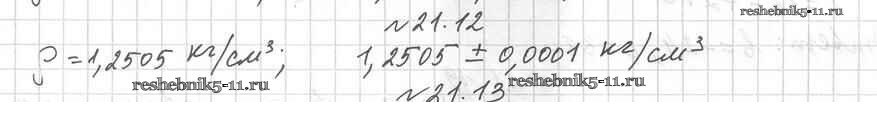 reshebnik5-11.ru
~21.12
ρ = 1,2505 кг/см³; 1,2505 ± 0,0001 кг/см³
reshebnik5-11.ru reshebnik5-11.ru
~21.13